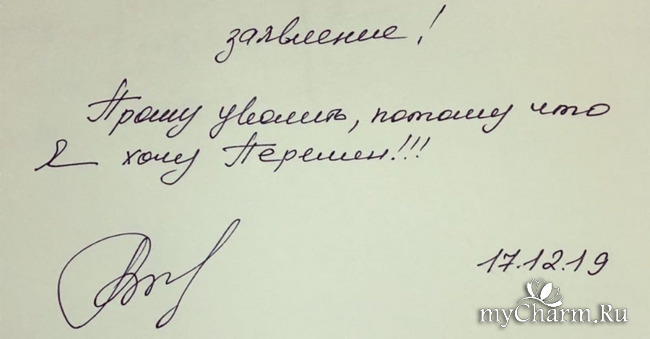 заявление!
Прошу уволить, потому что
Я хочу Перемен!!!
17.12.19
myCharm.Ru